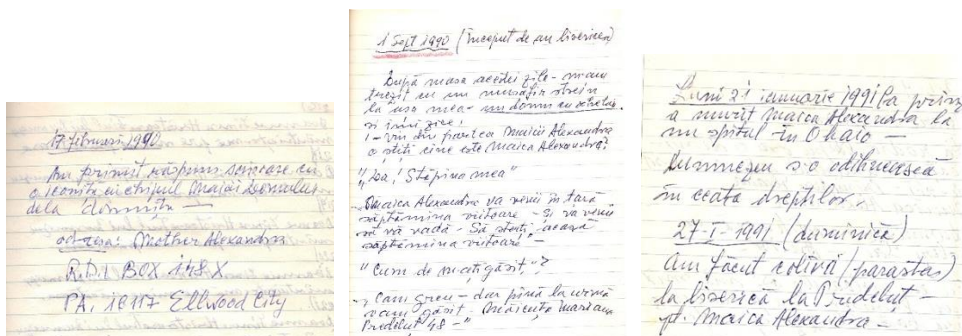 17 februarie 1990
Am primit răspuns scrisoare cu
o iconiță cu chipul Maicii Domnului
dela Dormița —
adresa: Mother Alexandra
R.D.1 BOX 148 X
PA, 16117 Ellwood City
1 Sept 1990 (început de an bisericesc)
După masa acestei zile - m-am
trezit cu un musafir strein
la ușa mea - un domn cu ochelari
și îmi zice:
! - Vin din partea Maicii Alexandra
o știți cine este Maica Alexandra?
"Da! Stăpîna mea"
"Maica Alexandra va veni în țară
săptămîna viitoare - Și va veni
să vă vadă - Să stați acasă
săptămîna viitoare" -
"Cum de m-ați găsit"?
- "Cam greu - dar pînă la urmă
v-am găsit. Măicuța Mariam
Prudelut 48 -"
Luni 21 ianuarie 1991 la prînz
a murit Maica Alexandra la
un spital in Ohaio —
Dumnezeu s-o odihnească
în ceata drepților.
27-I-1991 (duminică)
Am făcut colivă (parastas)
la biserică la Prudelut -
pt. Maica Alexandra